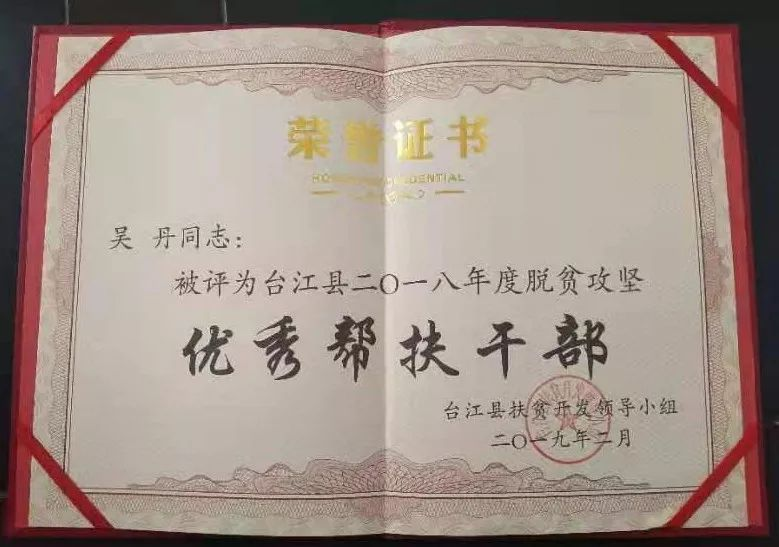 荣誉证书
吴 丹同志：
被评为台江县二〇一八年度脱贫攻坚
优秀帮扶干部
台江县扶贫开发领导小组
二〇一九年二月